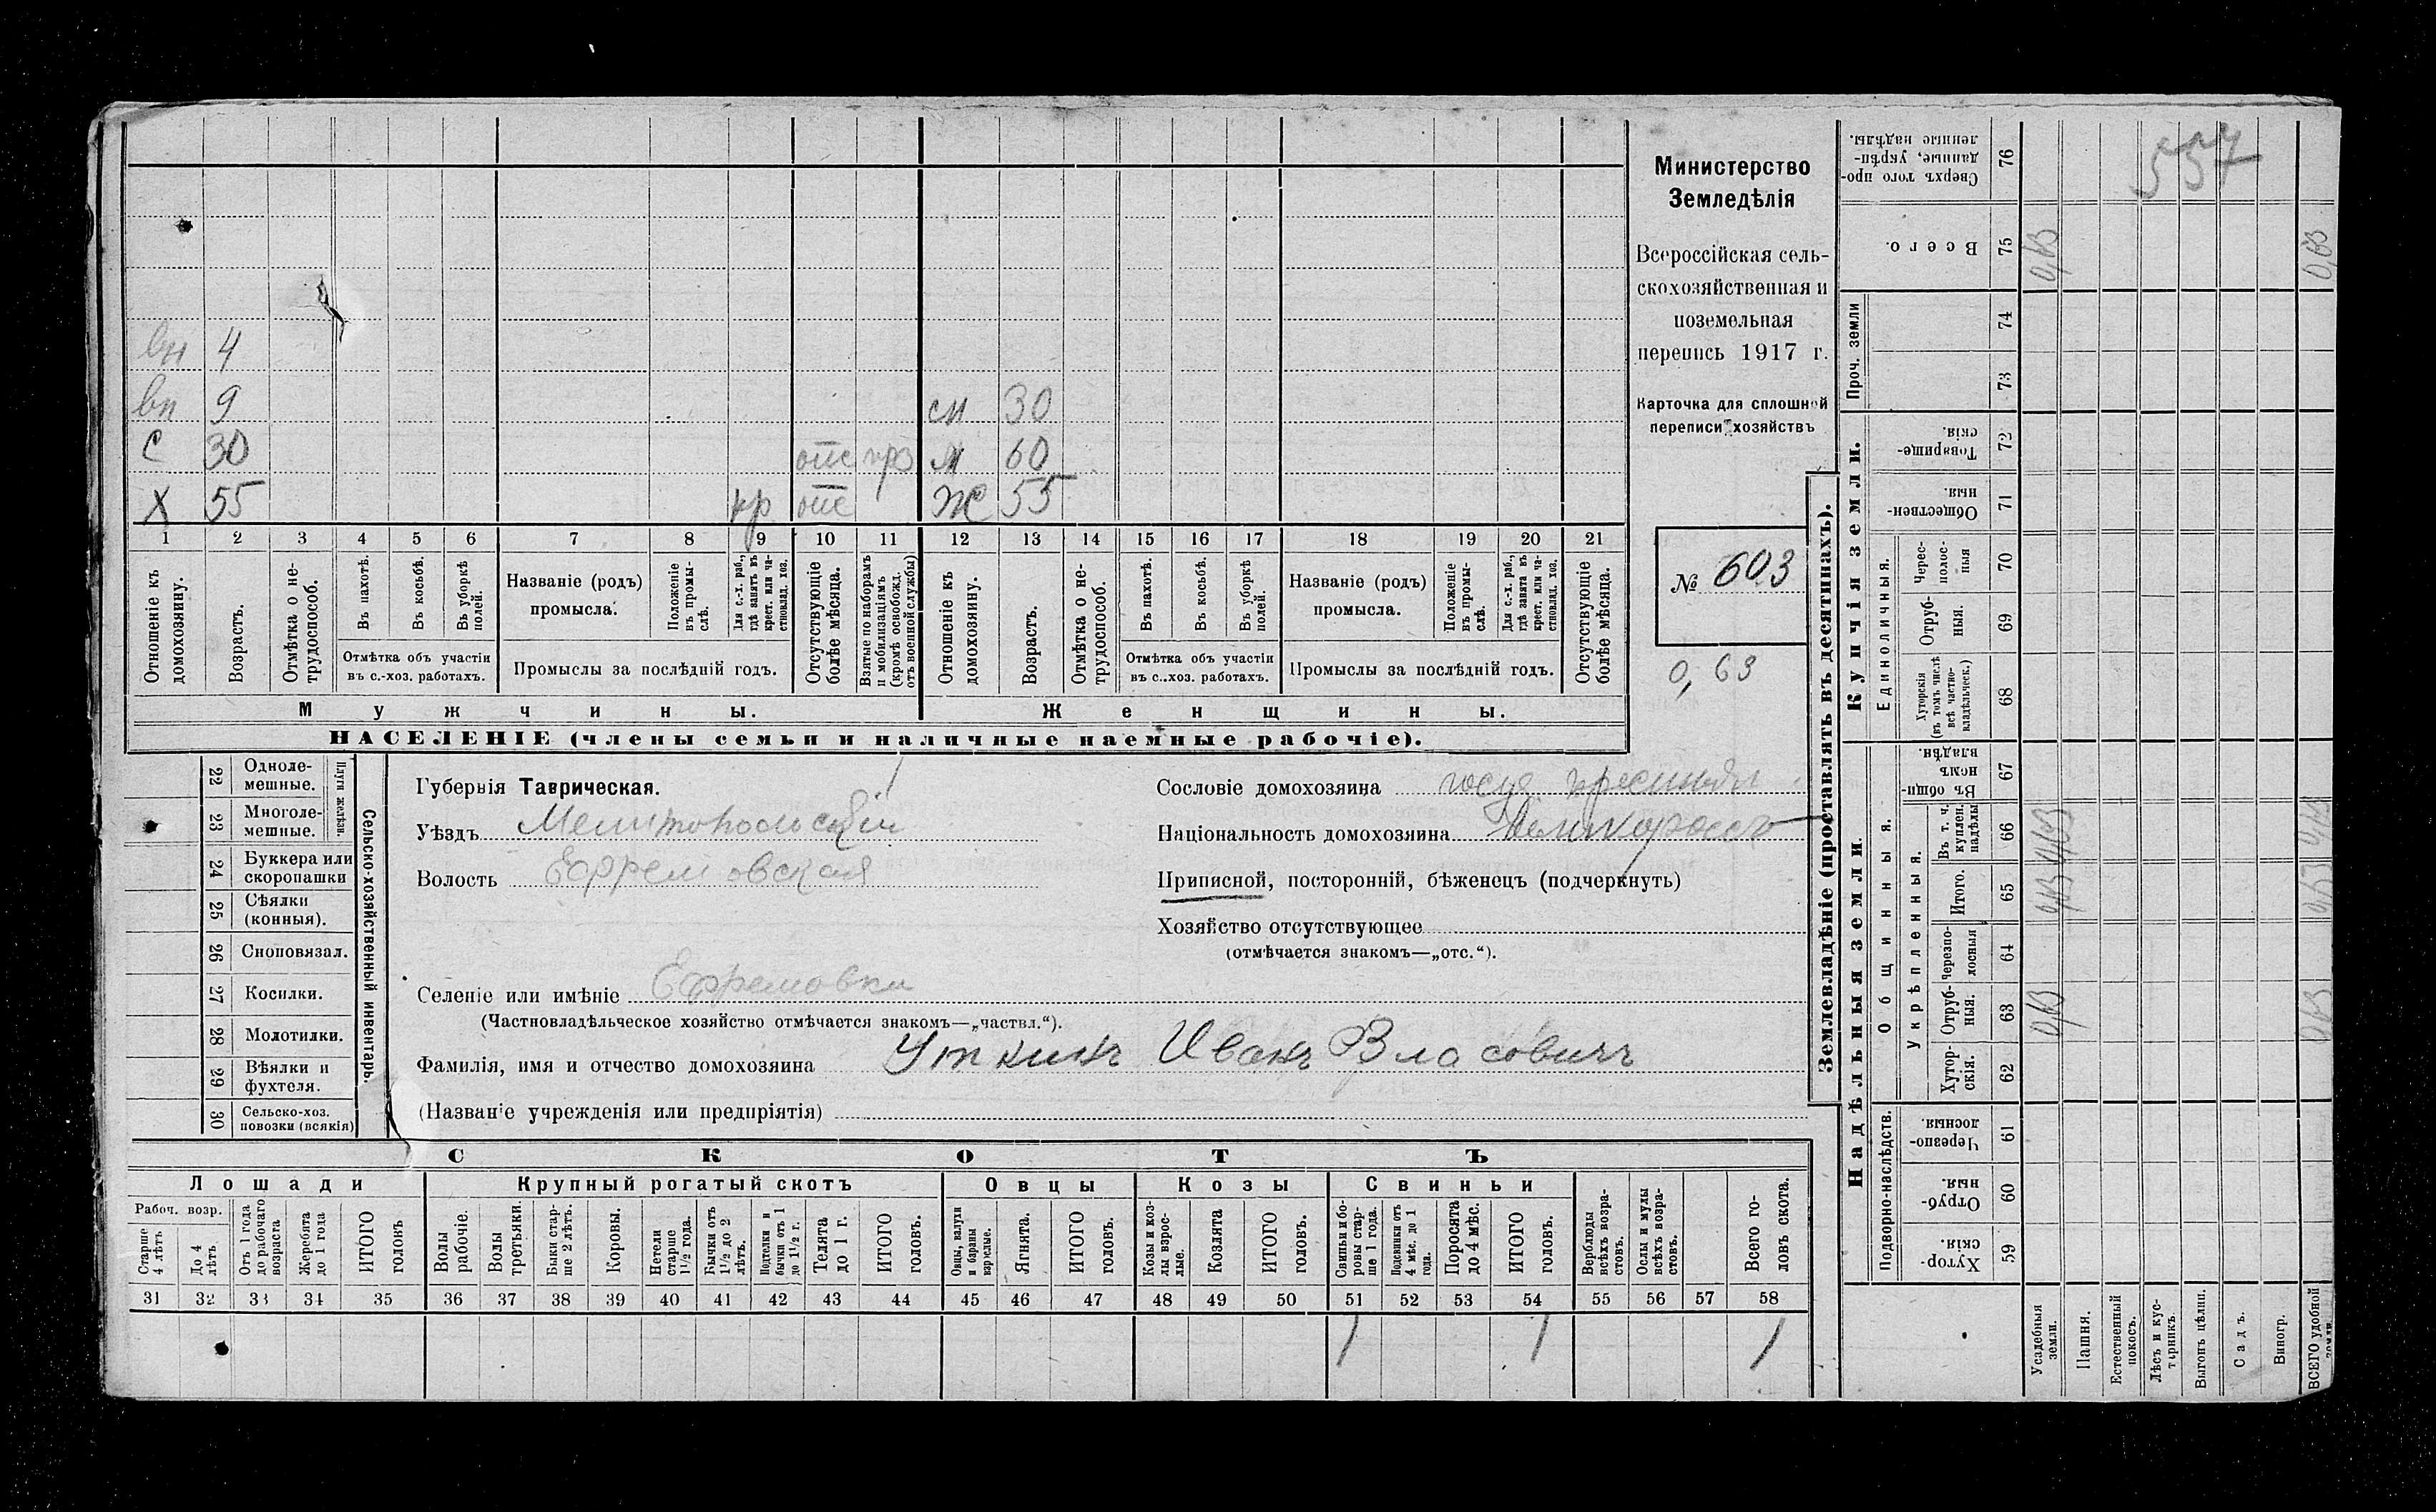 557
Министерство
Земледѣлія
Всероссійская сель-
скохозяйственная и
поземельная
перепись 1917 г.
Карточка для сплошной
переписи хозяйствъ
№ 603
0,63
вн 4
вн 9 сн 30
С 30 отс прз м 60
Х 55 кр отс Ж 55
1 2 3 4 5 6 7 8 9 10 11 12 13 14 15 16 17 18 19 20 21
Отношеніе къ домохозяину.
Возрастъ.
Отмѣтка о не-трудоспособ.
Въ пахотѣ.
Въ косьбѣ.
Въ уборкѣ полей.
Отмѣтка объ участіи
въ с.-хоз. работахъ.
Названіе (родъ)
промысла.
Положеніе въ промы-слѣ.
Для с.-х. раб., гдѣ занятъ въ крест. или ча-стновлад. хоз.
Промыслы за послѣдній годъ.
Отсутствующіе болѣе мѣсяца.
Взятые по наборамъ и мобилизаціямъ (кромѣ освобожд. отъ военной службы)
Отношеніе къ домохозяину.
Возрастъ.
Отмѣтка о не-трудоспособ.
Въ пахотѣ.
Въ косьбѣ.
Въ уборкѣ полей.
Отмѣтка объ участіи
въ с.-хоз. работахъ.
Названіе (родъ)
промысла.
Положеніе въ промы-слѣ.
Для с.-х. раб., гдѣ занята въ крест. или ча-стновлад. хоз.
Промыслы за послѣдній годъ.
Отсутствующіе болѣе мѣсяца.
Мужчины. Женщины.
НАСЕЛЕНІЕ (члены семьи и наличные наемные рабочіе).
Сельско-хозяйственный инвентарь.
Плуги желѣзн.
22 Одноле-мешные.
23 Многоле-мешные.
24 Буккера или скоропашки
25 Сѣялки (конныя).
26 Сноповязал.
27 Косилки.
28 Молотилки.
29 Вѣялки и фухтеля.
30 Сельско-хоз. повозки (всякія)
Губернія Таврическая.
Уѣздъ Мелитопольскій
Волость Ефремовская
Селеніе или имѣніе Ефремовка
(Частновладѣльческое хозяйство отмѣчается знакомъ—„частвл.“).
Фамилія, имя и отчество домохозяина Уткинъ Иванъ Власовичъ
(Названіе учрежденія или предпріятія)
Сословіе домохозяина
Національность домохозяина Великороссъ
Приписной, посторонній, бѣженецъ (подчеркнуть)
Хозяйство отсутствующее
(отмѣчается знакомъ—„отс.“).
СКОТЪ
Лошади Крупный рогатый скотъ Овцы Козы Свиньи
Рабоч. возр.
Старше 4 лѣтъ
До 4 лѣтъ
Отъ 1 года до рабочаго возраста
Жеребята до 1 года
ИТОГО головъ
Волы рабочіе.
Волы третьяки.
Быки стар-ше 2 лѣтъ.
Коровы.
Нетели старше 1½ года.
Бычки отъ 1½ до 2 лѣтъ.
Подтелки и бычки отъ 1 до 1½ г.
Телята до 1 г.
ИТОГО головъ.
Овцы, валухи и бараны взрослые.
Ягнята.
ИТОГО головъ.
Козы и коз-лы взрос-лые.
Козлята
ИТОГО головъ.
Свиньи и бо-ровы стар-ше 1 года.
Подсвинки отъ 4 мѣс. до 1 года.
Поросята до 4 мѣс.
ИТОГО головъ.
Верблюды всѣхъ возра-стовъ.
Ослы и мулы всѣхъ возра-стовъ.
Всего го-ловъ скота.
31 32 33 34 35 36 37 38 39 40 41 42 43 44 45 46 47 48 49 50 51 52 53 54 55 56 57 58
1 1 1
Землевладѣніе (проставлять въ десятинахъ).
Надѣльныя земли. Купчія земли. Проч. земли
Подворно-наслѣдств.
Общинныя.
Укрѣпленныя.
Единоличныя.
59 Хутор-скія.
60 Отруб-ныя.
61 Черезпо-лосныя.
62 Хутор-скія.
63 Отруб-ныя.
64 Черезпо-лосныя
65 Итого.
66 Въ т. ч. куплен. надѣлы
67 Въ общи-номъ владѣн.
68 Хуторскія (въ томъ числѣ всѣ частно-владѣльческ.)
69 Отруб-ныя.
70 Черес-полос-ныя
71 Обществен-ныя.
72 Товарище-скія.
73
74
75 Всего.
76 Сверхъ того про-данные, укрѣп-ленные надѣлы.
Усадебныя земли.
Пашня.
Естественный покосъ.
Лѣсъ и кус-тарникъ.
Выгонъ цѣлин.
Садъ.
Виногр.
ВСЕГО удобной земли